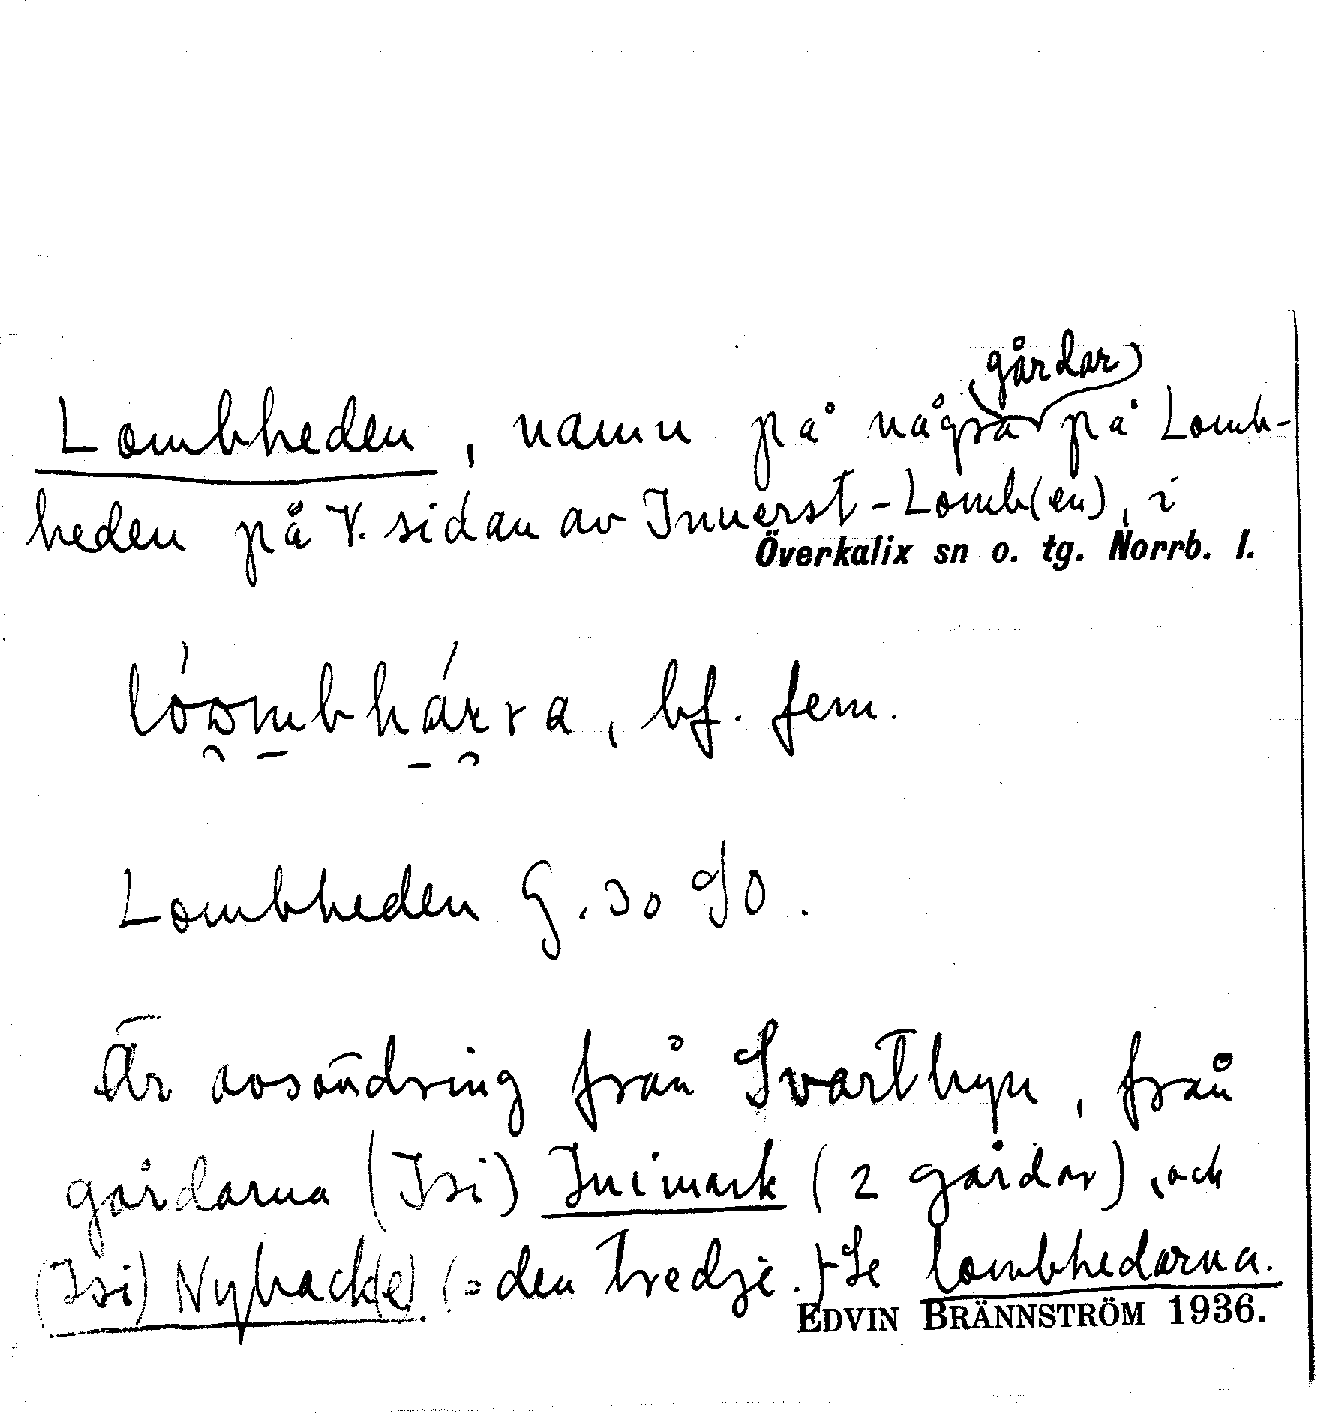 Lombheden, namn på några gårdar på Lomb-
heden på V. sidan av Innerst-Lomb(en), i
Överkalix sn o. tg. Norrb. l.
bf. fem.
Lombheden G. 30
Är avsöndring från Svartbyn, från
gårdarna (Isi) Inimark (2 gårdar), och
(Isi) Nyback(e) (= den tredje.) Se Lombhedarna.
EDVIN BRÄNNSTRÖM 1936.